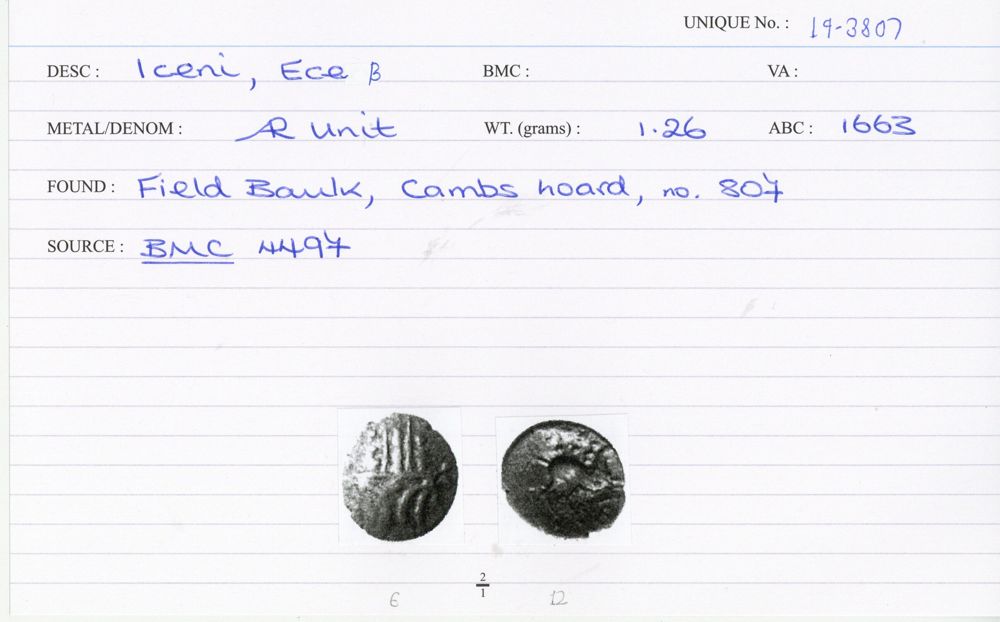 UNIQUE No. : 19-3807
DESC : Iceni, Ece β BMC : VA :
METAL/DENOM : AR Unit WT. (grams) : 1.26 ABC : 1663
FOUND : Field Baulk, Cambs hoard, no. 807
SOURCE : BMC 4497
2
1
6 12